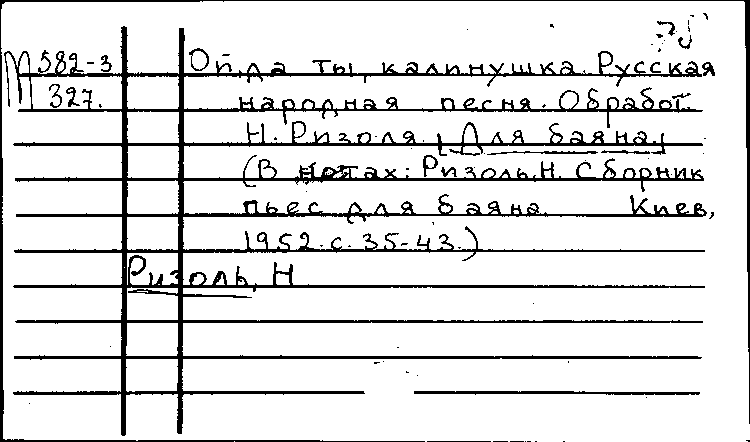 75
М 582-3 Ой, да ты, калинушка. Русская
327. народная песня. Обработ.
Н. Ризоля. [Для баяна]
(В нотах: Ризоль, Н. Сборник
пьес для баяна. Киев,
1952. с. 35-43.)
Ризоль, Н